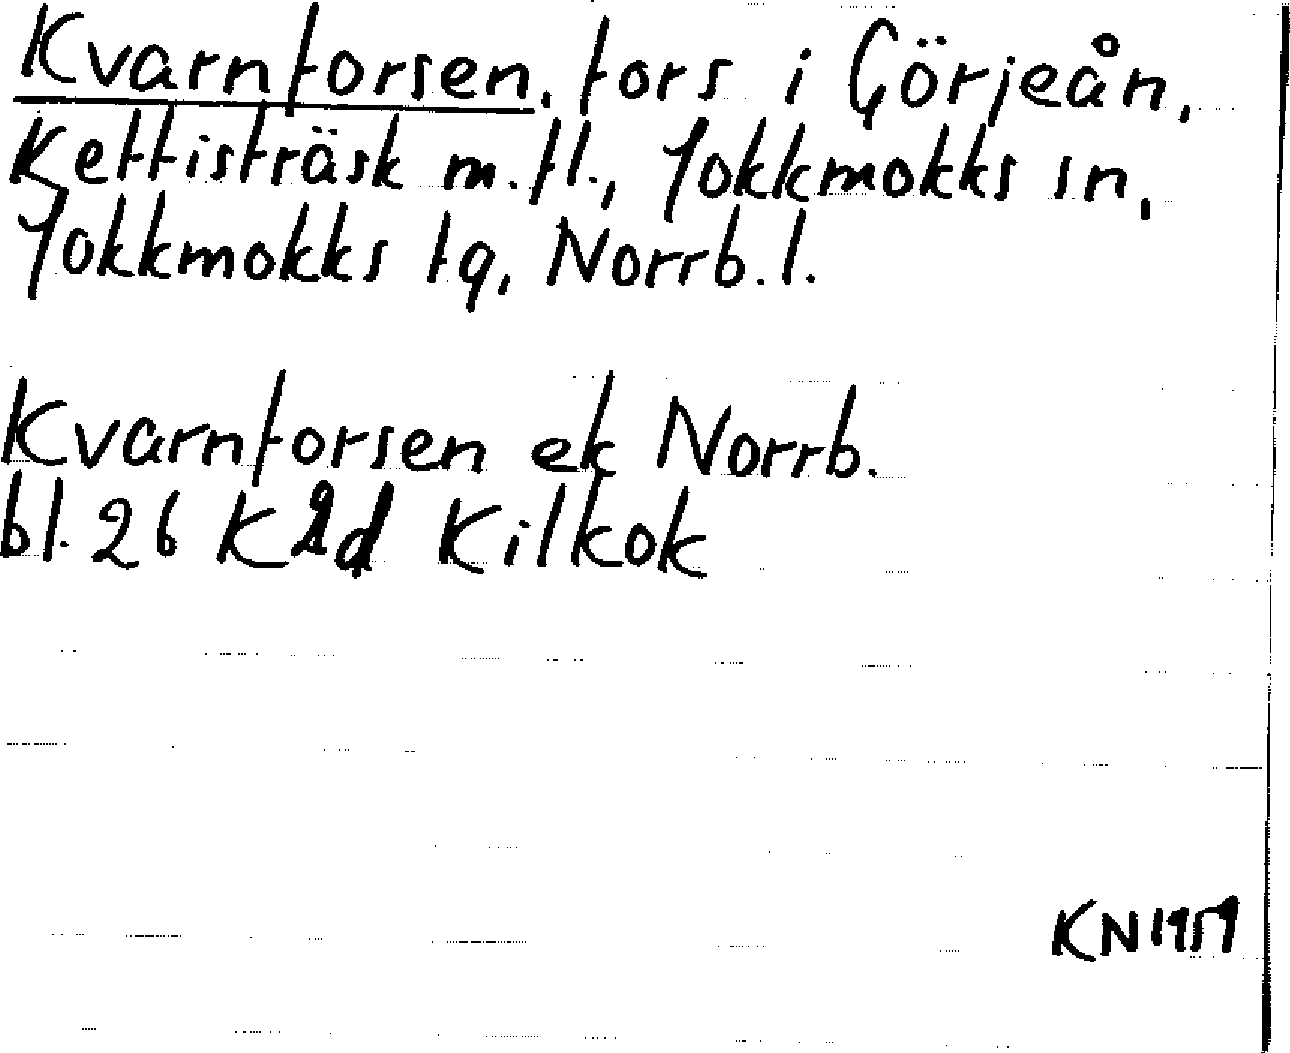 Kvarnforsen, fors i Görjeån,
Kettisträsk m.fl., Jokkmokks sn,
Jokkmokks tg, Norrb.l.
Kvarnforsen ek Norrb.
bl. 26 K2d Kilkok
KN